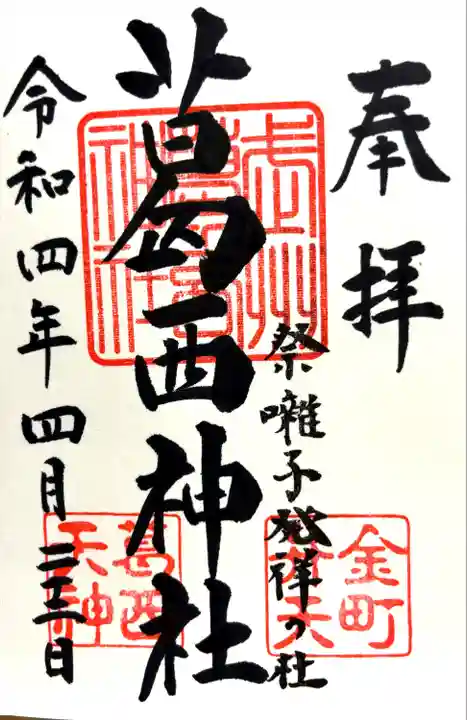 奉拝
祭囃子発祥の社
葛西神社
令和四年四月二三日
武州
神社
金町
葛西
天神